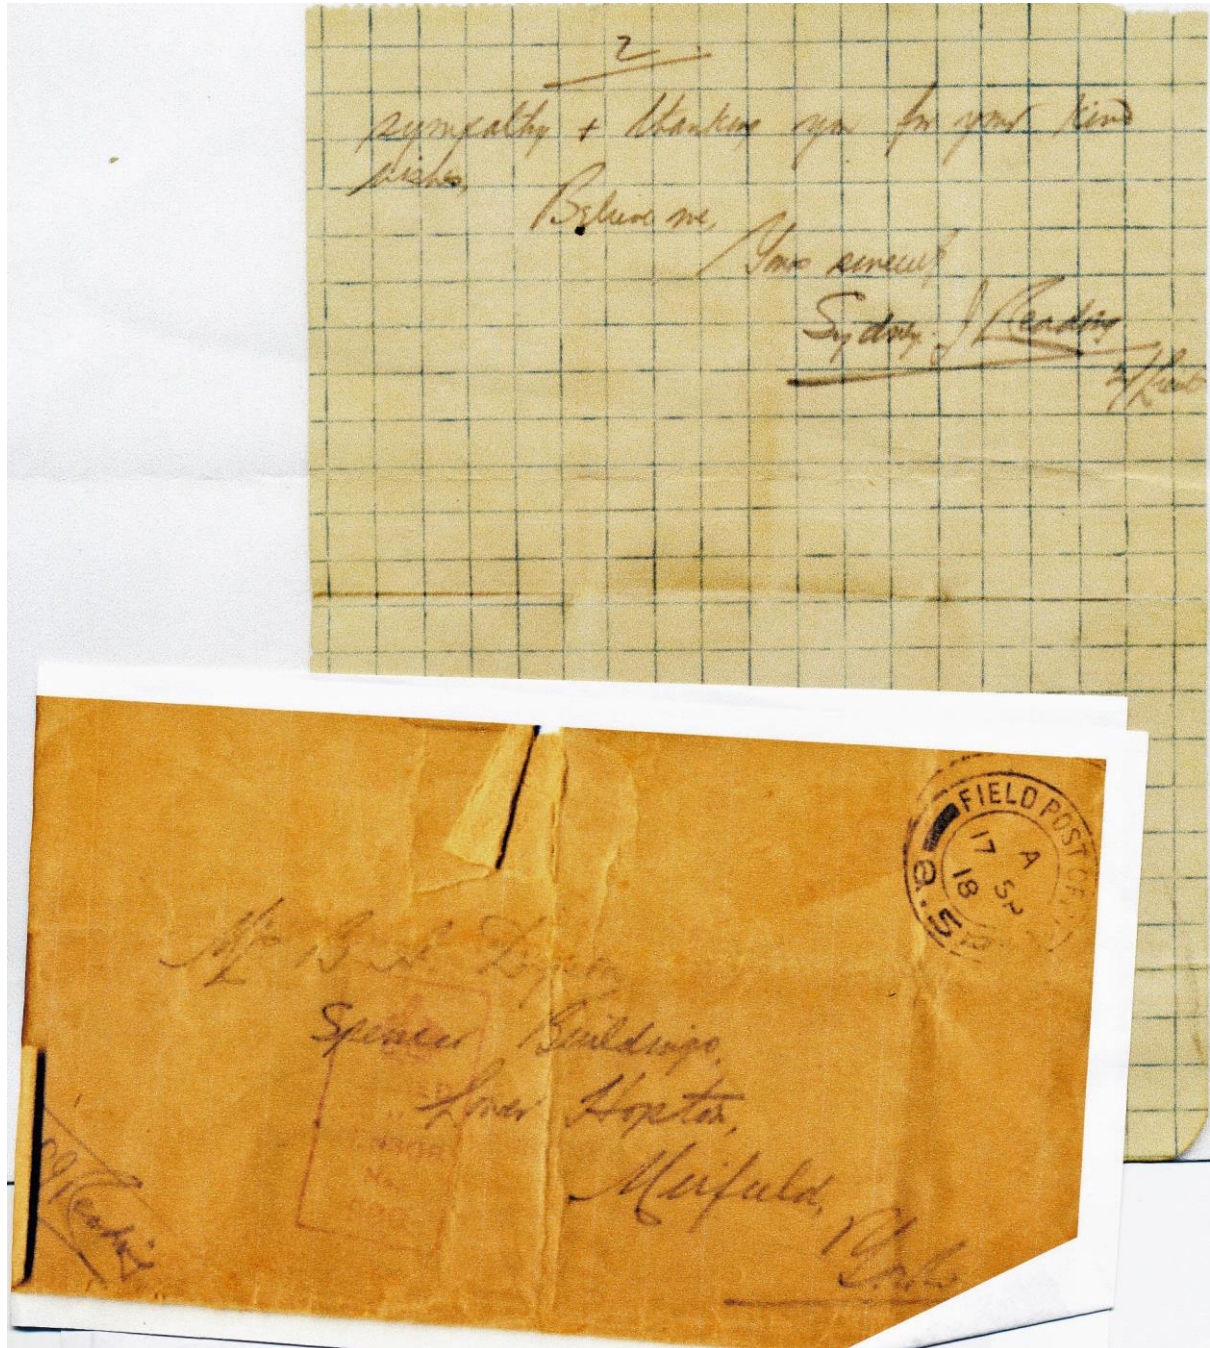 2.
sympathy + thanking you for your kind
wishes,
Believe me,
Yours sincerely
Sydney. J Reading
2/Lieut
FIELD POST OFFICE
A
17 SP
18
Mr
Spencer Buildings,
Lower Hopton,
Mirfield,
Yorks
SJ Reading